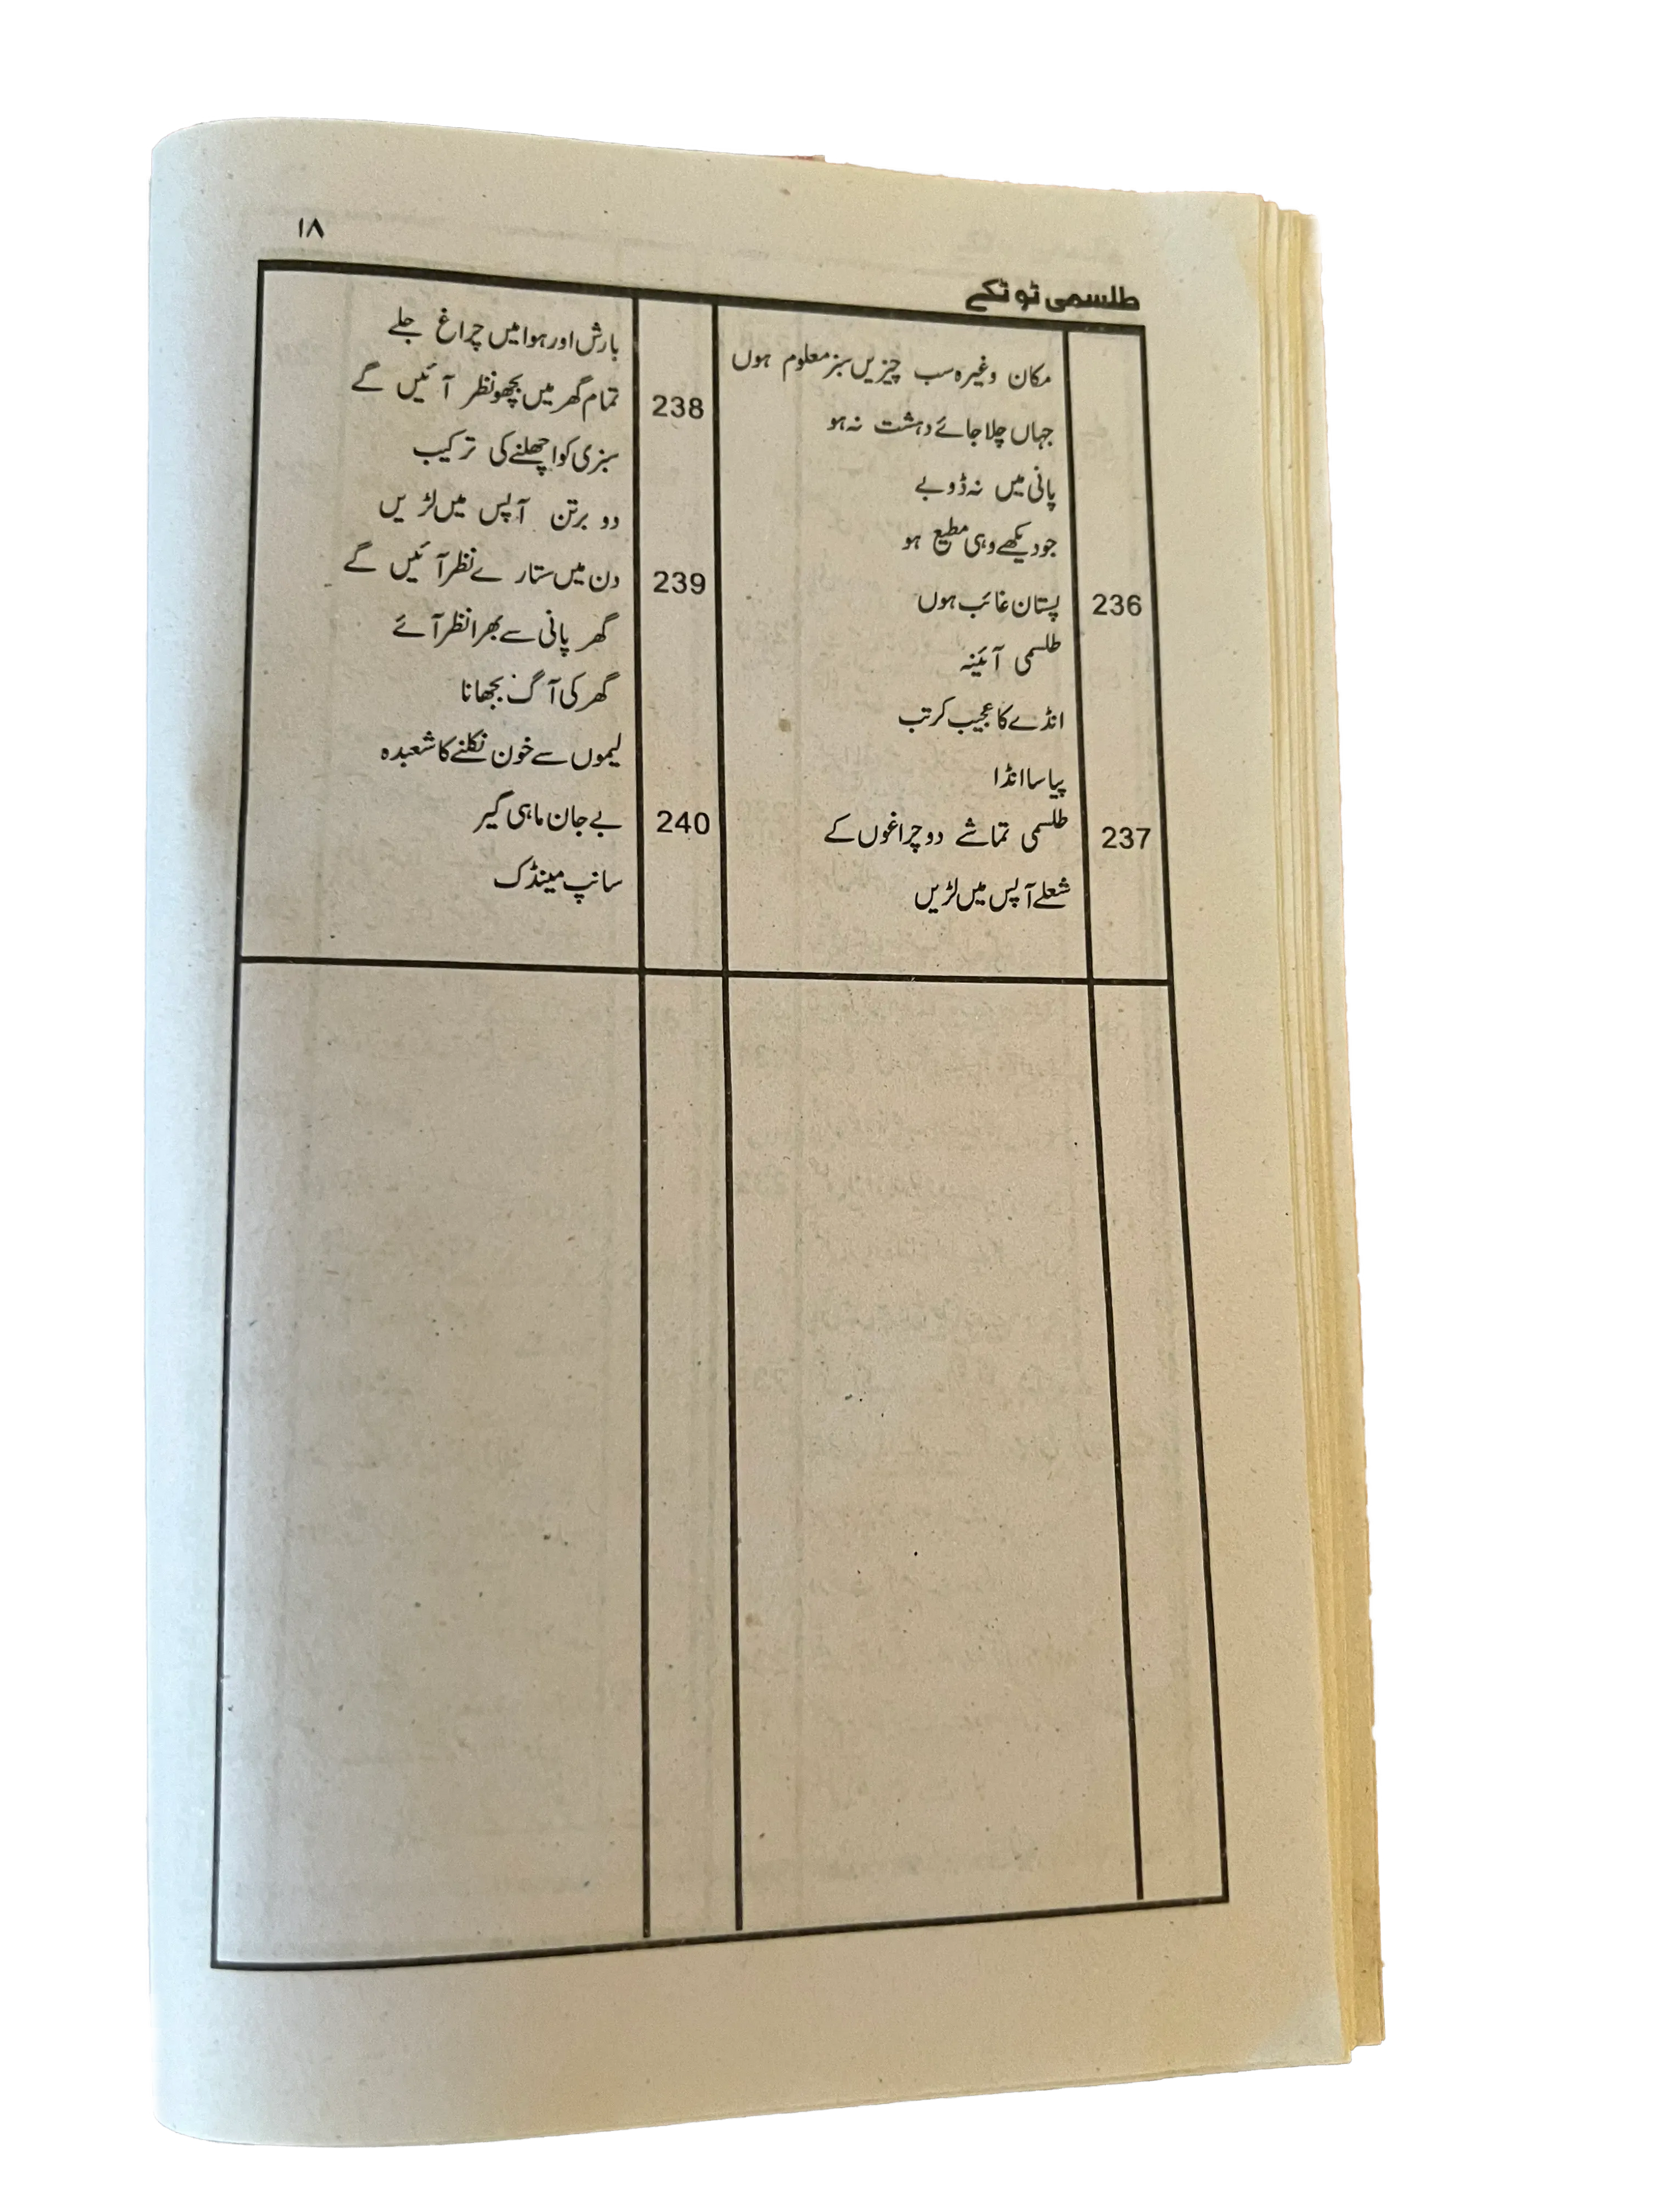 ۱۸
طلسمی ٹوٹکے
مکان وغیرہ سب چیزیں سبز معلوم ہوں
جہاں چلا جائے دہشت نہ ہو
پانی میں نہ ڈوبے
جو دیکھے وہی مطیع ہو
236 پستان غائب ہوں
طلسمی آئینہ
انڈے کا عجیب کرتب
پیاسا انڈا
237 طلسمی تماشے دو چراغوں کے
شعلے آپس میں لڑیں
بارش اور ہوا میں چراغ جلے
238 تمام گھر میں بچھو نظر آئیں گے
سبزی کو اچھلنے کی ترکیب
دو برتن آپس میں لڑیں
239 دن میں ستارے نظر آئیں گے
گھر پانی سے بھرا نظر آئے
گھر کی آگ بجھانا
لیموں سے خون نکلنے کا شعبدہ
240 بے جان ماہی گیر
سانپ مینڈک